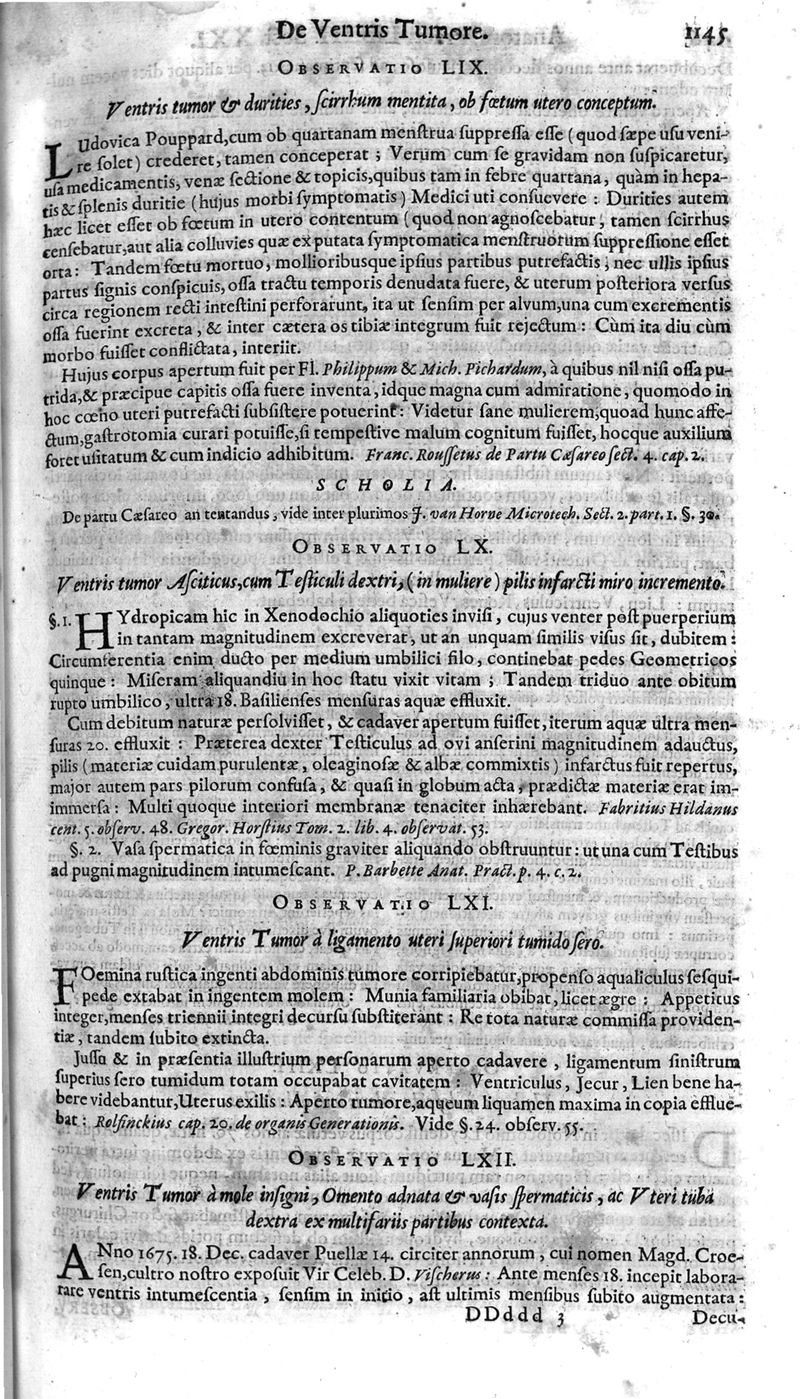 De Ventris Tumore. 1145
OBSERVATIO LIX.
Ventris tumor & durities, ſcirrhum mentita, ob fœtum utero conceptum.
LUdovica Pouppard, cum ob quartanam menſtrua ſuppreſſa eſſe (quod ſæpe uſu veni-
re ſolet) crederet, tamen conceperat; Verum cum ſe gravidam non ſuſpicaretur,
uſa medicamentis, venæ ſectione & topicis, quibus tam in febre quartana, quàm in hepa-
tis & ſplenis duritie (hujus morbi ſymptomatis) Medici uti conſuevere: Durities autem
hæc licet eſſet ob fœtum in utero contentum (quod non agnoſcebatur, tamen ſcirrhus
cenſebatur, aut alia colluvies quæ ex putata ſymptomatica menſtruorum ſuppreſſione eſſet
orta: Tandem fœtu mortuo, mollioribusque ipſius partibus putrefactis, nec ullis ipſius
partus ſignis conſpicuis, oſſa tractu temporis denudata fuere, & uterum poſteriora verſus
circa regionem recti inteſtini perforarunt, ita ut ſenſim per alvum, una cum excrementis
oſſa fuerint excreta, & inter cætera os tibiæ integrum fuit rejectum: Cùm ita diu cùm
morbo fuiſſet conflictata, interiit.
Hujus corpus apertum fuit per Fl. Philippum & Mich. Pichardum, à quibus nil niſi oſſa pu-
trida, & præcipue capitis oſſa fuere inventa, idque magna cum admiratione, quomodo in
hoc cœno uteri putrefacti ſubſiſtere potuerint: Videtur ſane mulierem, quoad hunc affe-
ctum, gaſtrotomia curari potuiſſe, ſi tempeſtive malum cognitum fuiſſet, hocque auxilium
foret uſitatum & cum indicio adhibitum. Franc. Rouſſetus de Partu Cæſareo ſect. 4. cap. 2.
SCHOLIA.
De partu Cæſareo an tentandus, vide inter plurimos J. van Horne Microtech. Sect. 2. part. 1. §. 30.
OBSERVATIO LX.
Ventris tumor Aſciticus, cum Teſticuli dextri, (in muliere) pilis infarcti miro incremento.
§. 1. HYdropicam hic in Xenodochio aliquoties inviſi, cujus venter poſt puerperium
in tantam magnitudinem excreverat, ut an unquam ſimilis viſus ſit, dubitem:
Circumferentia enim ducto per medium umbilici filo, continebat pedes Geometricos
quinque: Miſeram aliquandiu in hoc ſtatu vixit vitam; Tandem triduo ante obitum
rupto umbilico, ultra 18. Baſilienſes menſuras aquæ effluxit.
Cum debitum naturæ perſolviſſet, & cadaver apertum fuiſſet, iterum aquæ ultra men-
ſuras 20. effluxit: Præterea dexter Teſticulus ad ovi anſerini magnitudinem adauctus,
pilis (materiæ cuidam purulentæ, oleaginoſæ & albæ commixtis) infarctus fuit repertus,
major autem pars pilorum confuſa, & quaſi in globum acta, prædictæ materiæ erat im-
immerſa: Multi quoque interiori membranæ tenaciter inhærebant. Fabritius Hildanus
cent. 5. obſerv. 48. Gregor. Horſtius Tom. 2. lib. 4. obſervat. 53.
§. 2. Vaſa ſpermatica in fœminis graviter aliquando obſtruuntur: ut una cum Teſtibus
ad pugni magnitudinem intumeſcant. P. Barbette Anat. Pract. p. 4. c. 2.
OBSERVATIO LXI.
Ventris Tumor à ligamento uteri ſuperiori tumido ſero.
FOemina ruſtica ingenti abdominis tumore corripiebatur, propenſo aqualiculus ſeſqui-
pede extabat in ingentem molem: Munia familiaria obibat, licet ægre: Appetitus
integer, menſes triennii integri decurſu ſubſtiterant: Re tota naturæ commiſſa providen-
tiæ, tandem ſubito extincta.
Juſſu & in præſentia illuſtrium perſonarum aperto cadavere, ligamentum ſiniſtrum
ſuperius ſero tumidum totam occupabat cavitatem: Ventriculus, Jecur, Lien bene ha-
bere videbantur, Uterus exilis: Aperto tumore, aqueum liquamen maxima in copia efflue-
bat: Rolfinckius cap. 20. de organis Generationis. Vide §. 24. obſerv. 55.
OBSERVATIO LXII.
Ventris Tumor à mole inſigni, Omento adnata & vaſis ſpermaticis, ac Uteri tuba
dextra ex multifariis partibus contexta.
ANno 1675. 18. Dec. cadaver Puellæ 14. circiter annorum, cui nomen Magd. Croe-
ſen, cultro noſtro expoſuit Vir Celeb. D. Viſcherus: Ante menſes 18. incepit labora-
rare ventris intumeſcentia, ſenſim in initio, aſt ultimis menſibus ſubito augmentata:
DDdddd 3 Decu-